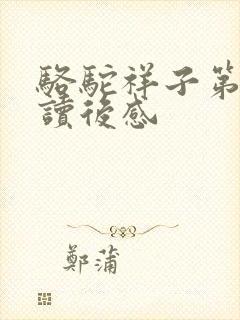 駱駝祥子第
讀後感
鄭蒲